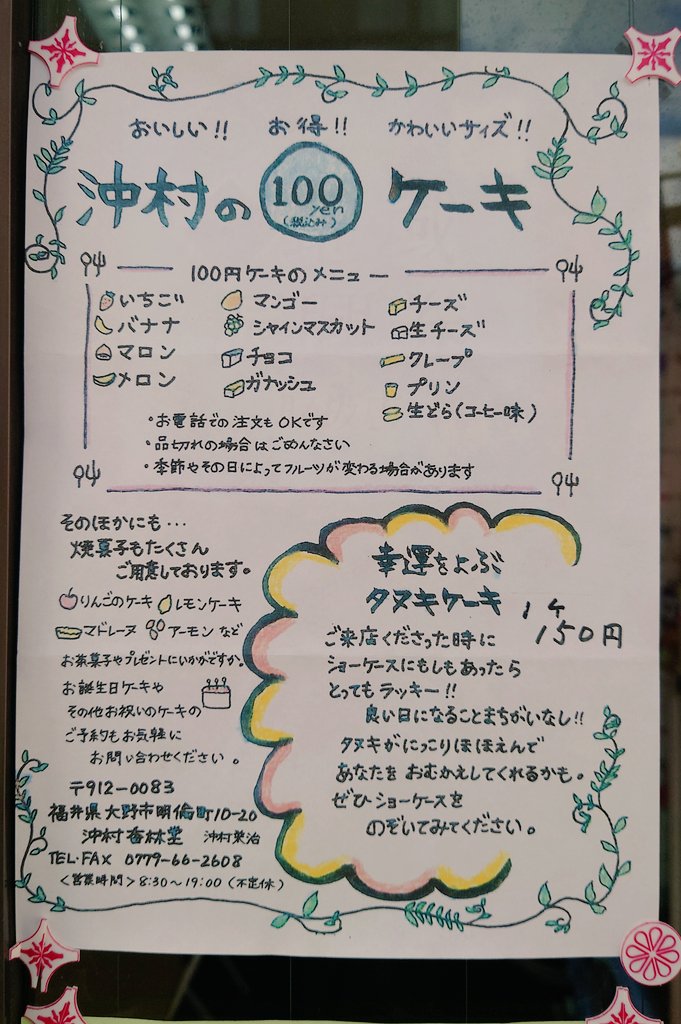 おいしい!! お得!! かわいいサイズ!!
沖村の 100 yen (税込み) ケーキ
100円ケーキのメニュー
いちご マンゴー チーズ
バナナ シャインマスカット 生チーズ
マロン チョコ クレープ
メロン ガナッシュ プリン
生どら(コーヒー味)
・お電話での注文もOKです
・品切れの場合はごめんなさい
・季節やその日によってフルーツが変わる場合があります
そのほかにも・・・
焼菓子もたくさん
ご用意しております。
りんごのケーキ レモンケーキ
マドレーヌ アーモン など
お茶菓子やプレゼントにいかがですか。
お誕生日ケーキや
その他お祝いのケーキの
ご予約もお気軽に
お問い合わせください。
〒912-0083
福井県大野市明倫町10-20
沖村杏林堂 沖村栄治
TEL・FAX 0779-66-2608
<営業時間> 8:30～19:00 (不定休)
幸運をよぶ
タヌキケーキ 1ケ
150円
ご来店くださった時に
ショーケースにもしもあったら
とってもラッキー!!
良い日になることまちがいなし!!
タヌキがにっこりほほえんで
あなたをおむかえしてくれるかも。
ぜひショーケースを
のぞいてみてください。